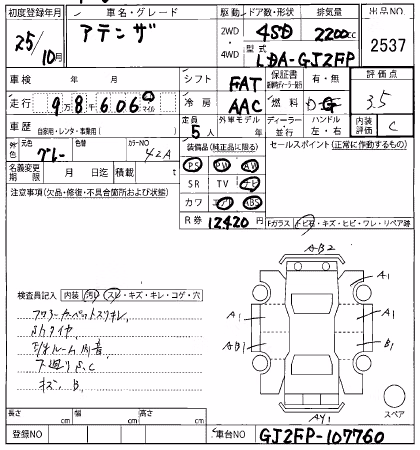 初度登録年月 車名・グレード 駆動 ドア数・形状 排気量 出品NO
25/10月 アテンザ 2WD 4SD 2200cc 2537
4WD 型式 LDA-GJ2FP
車検 年 月 シフト FAT 保証書 有・無 評価点
走行 9万8千606 マイル 冷房 AAC 燃料 3.5
車歴 自家用・レンタ・事業用( ) 定員 5人 外車モデル 年 ディーラー・並行 ハンドル 左・右 内装評価 C
外色 元色 グレー 色替 カラーNO 42A 装備品(純正品に限る) セールスポイント(正常に作動するもの)
名義変更期限 月 日迄 積載 t PS PW AW
注意事項(欠品・修復・不具合箇所および状態) SR TV ナビ
カワ エアB ABS
R券 12420円 Fガラス トビ石・キズ・ヒビ・ワレ・リペア跡
AB2
検査員記入 内装 汚レ・スレ・キズ・キレ・コゲ・穴 A1
フロアーカーペットスリキレ A1 A1
AB1 B1
下廻りS.C
キズ、B. スペア
AY1
長さ cm 幅 cm 高さ cm
登録NO 車台NO GJ2FP-107760